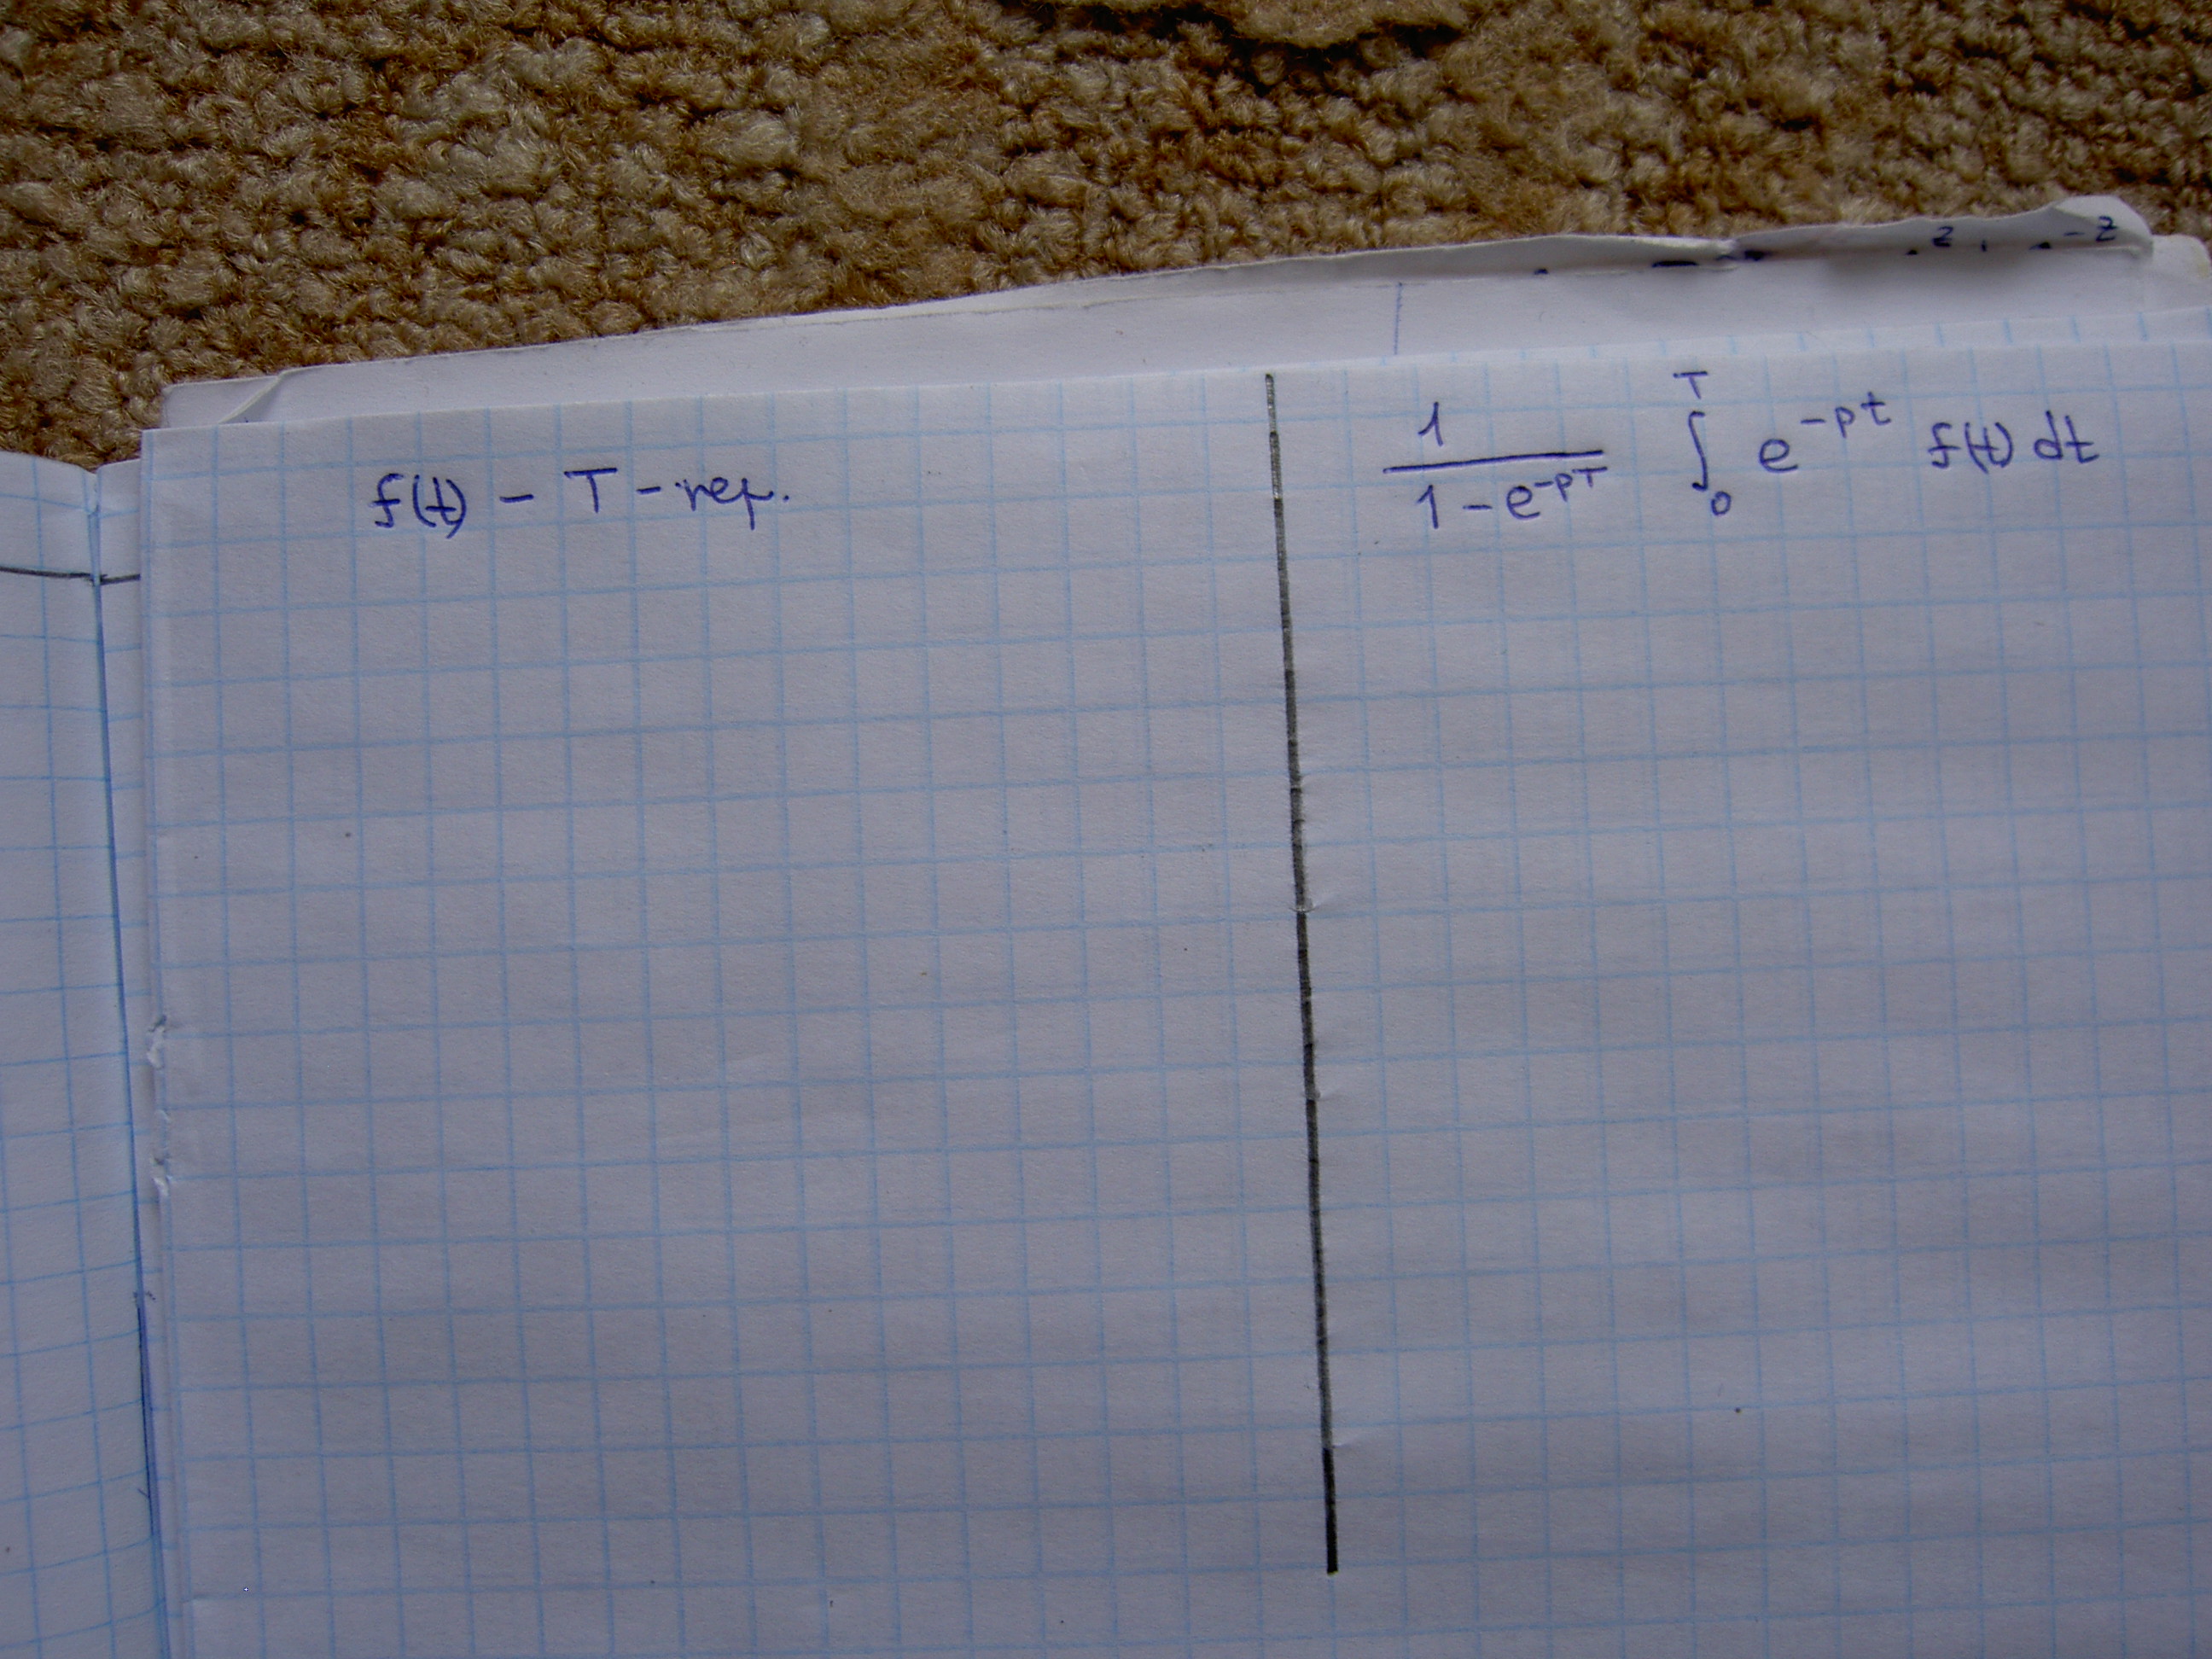 f(t) - T - пер.
1 / (1 - e^{-pT}) ∫_0^T e^{-pt} f(t) dt